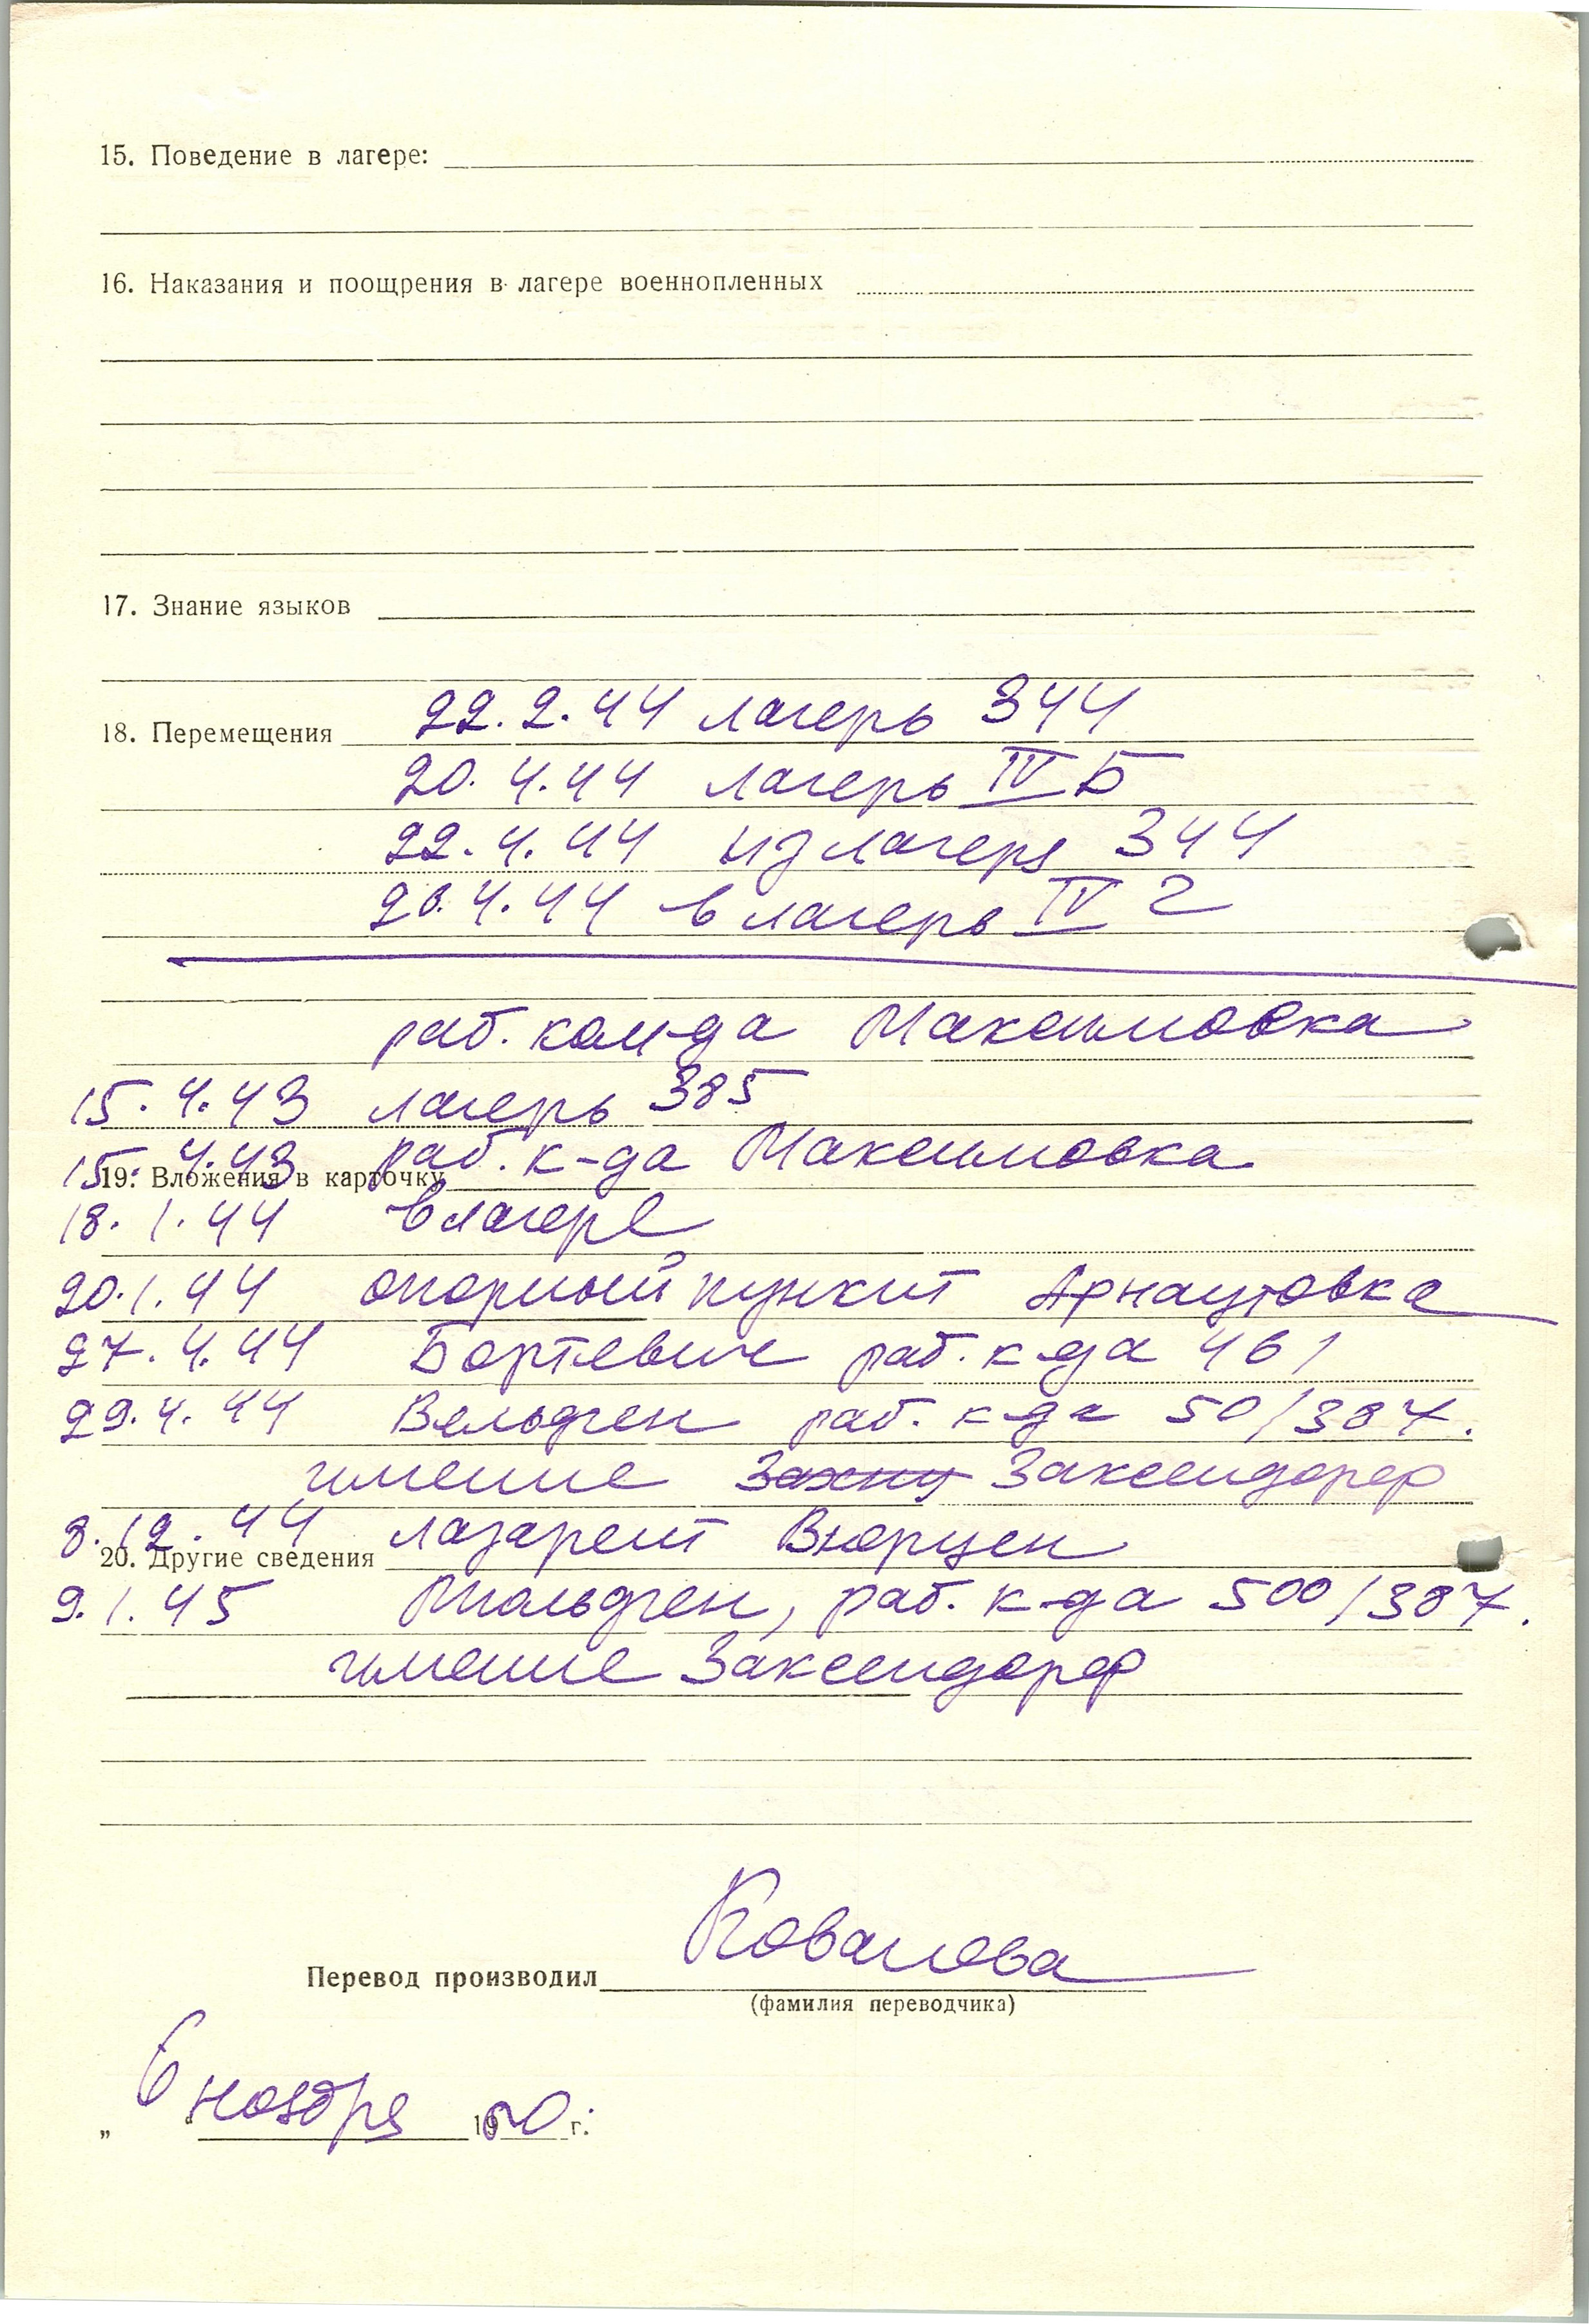 15. Поведение в лагере:
16. Наказания и поощрения в лагере военнопленных
17. Знание языков
18. Перемещения 22.2.44 лагерь 344
20.4.44 лагерь IV Б
22.4.44 из лагеря 344
20.4.44 в лагерь IV Г
раб. ком-да Максимовка
15.4.43 лагерь 385
15.4.43 раб. к-да Максимовка
19. Вложения в карточку
18.1.44 в лагере
20.1.44 опорный пункт Арнаутовка
27.4.44 раб. к-да 461
29.4.44 Вельдген раб. к-да 50/387.
имение Заксендорф
8.12.44 лазарет Вюрцен
20. Другие сведения
9.1.45 раб. к-да 500/387.
имение Заксендорф
Перевод производил Ковалова
(фамилия переводчика)
„ 6 " ноября 19 г.